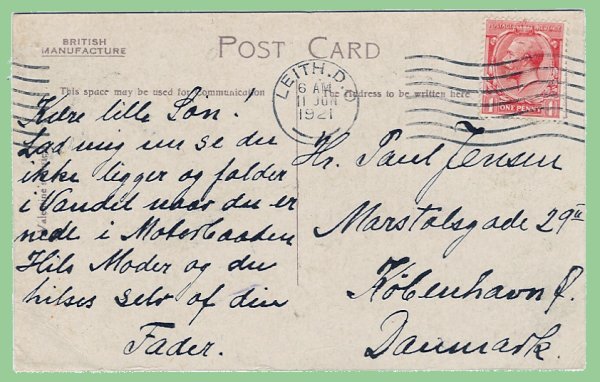 BRITISH
MANUFACTURE
POST CARD
This space may be used for Communication
The Address to be written here
LEITH.D.O
6 AM
11 JUN
1921
POSTAGE REVENUE
ONE PENNY
Kære lille Søn!
Lad mig nu se du
ikke ligger og falder
i Vandet naar du er
nede i Motorbaaden
Hils Moder og du
hilses selv af din
Fader.
Hr. Paul Jensen
Marstalsgade 29
København Ø.
Danmark.